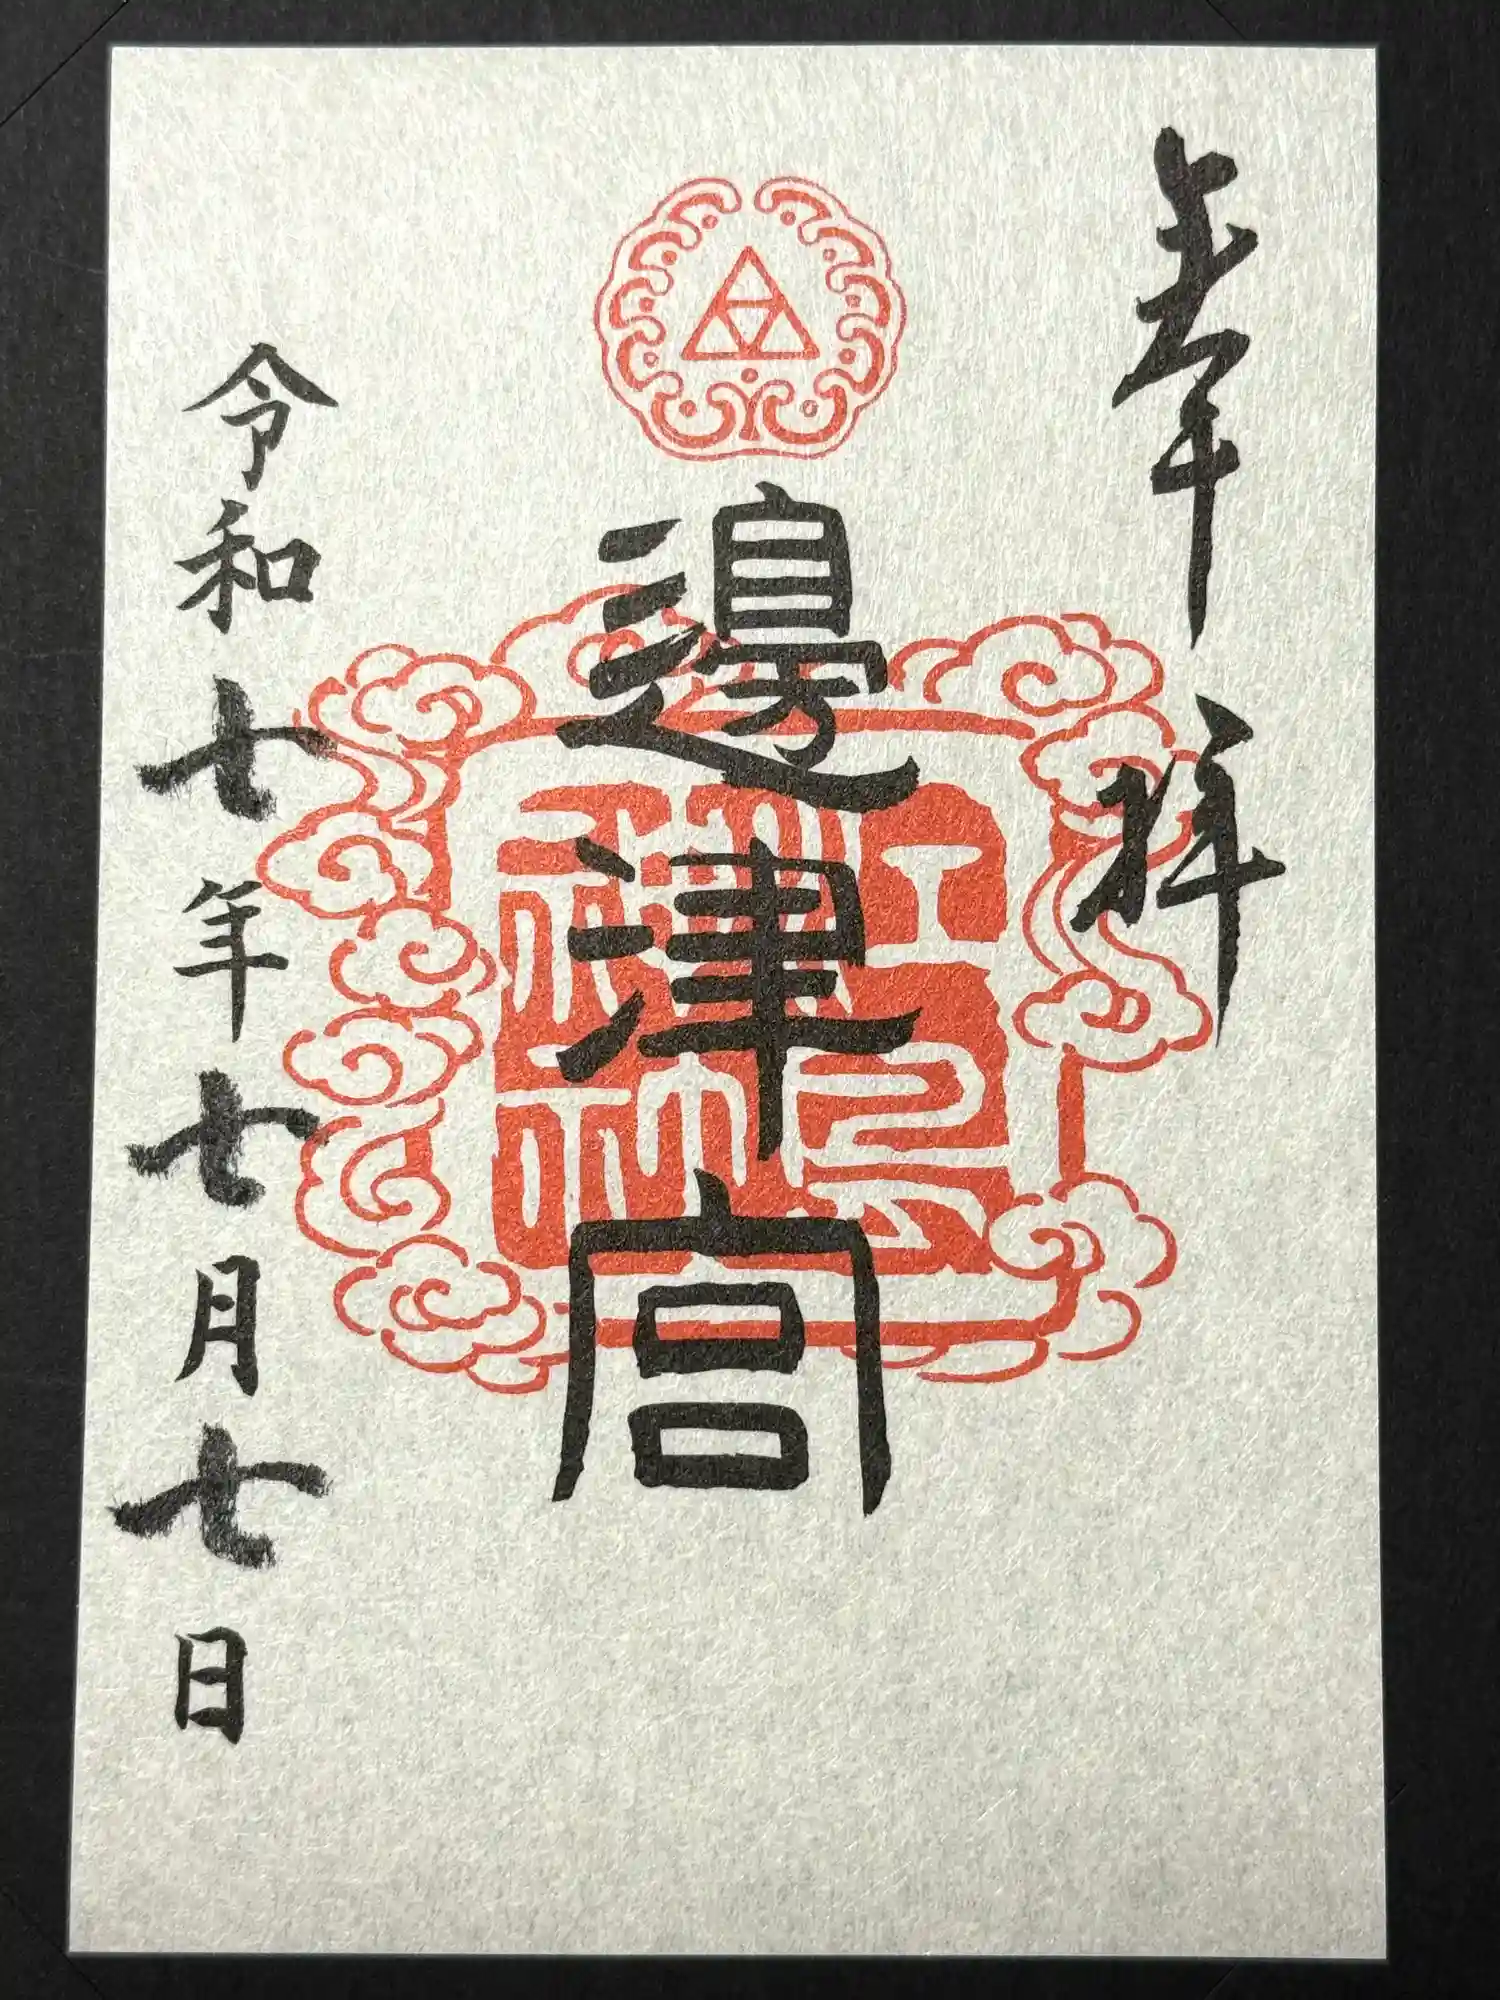 奉拝
邊津宮
令和七年七月七日